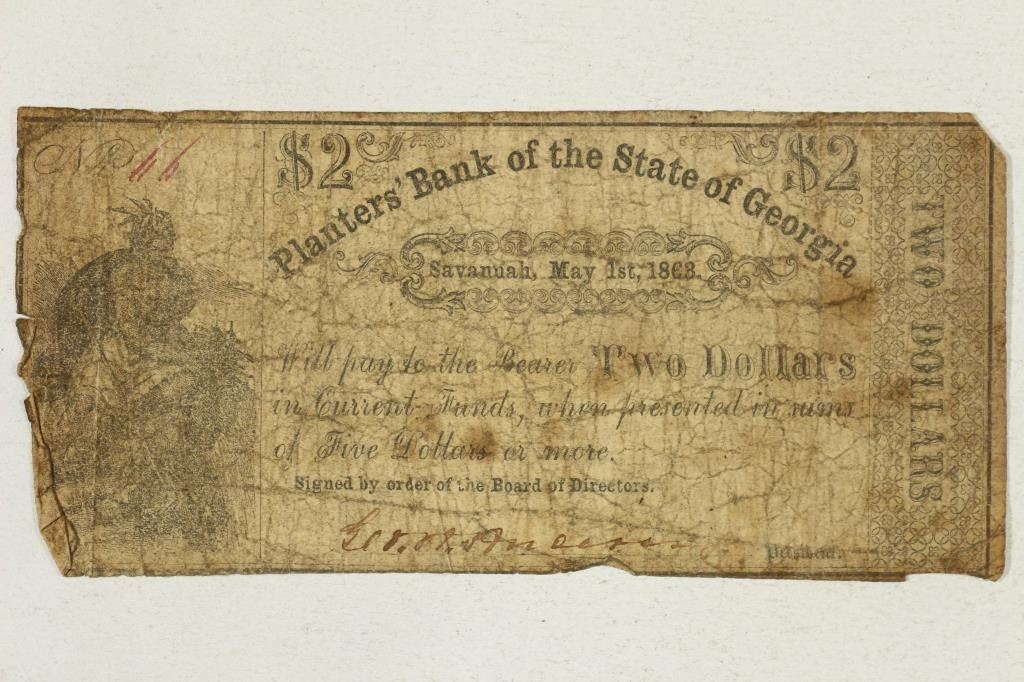 No 116
$2 $2
Planters' Bank of the State of Georgia
Savannah, May 1st, 1863.
Will pay to the Bearer Two Dollars
in Current Funds, when presented in sums
of Five Dollars or more.
Signed by order of the Board of Directors.
President.
TWO DOLLARS